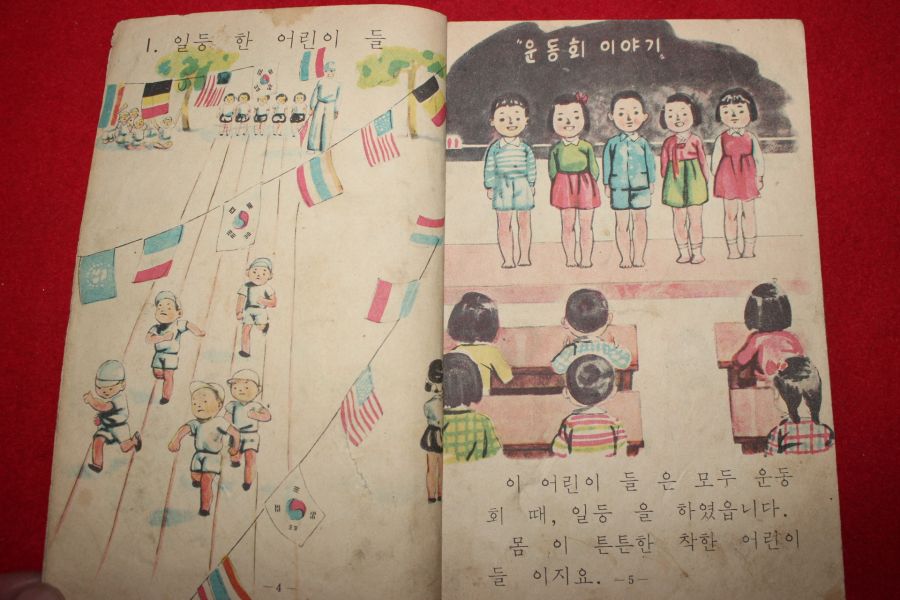 1. 일등 한 어린이 들
—4—
"운동회 이야기"
이 어린이 들 은 모두 운동
회 때, 일등 을 하였읍니다.
몸 이 튼튼한 착한 어린이
들 이지요.
—5—